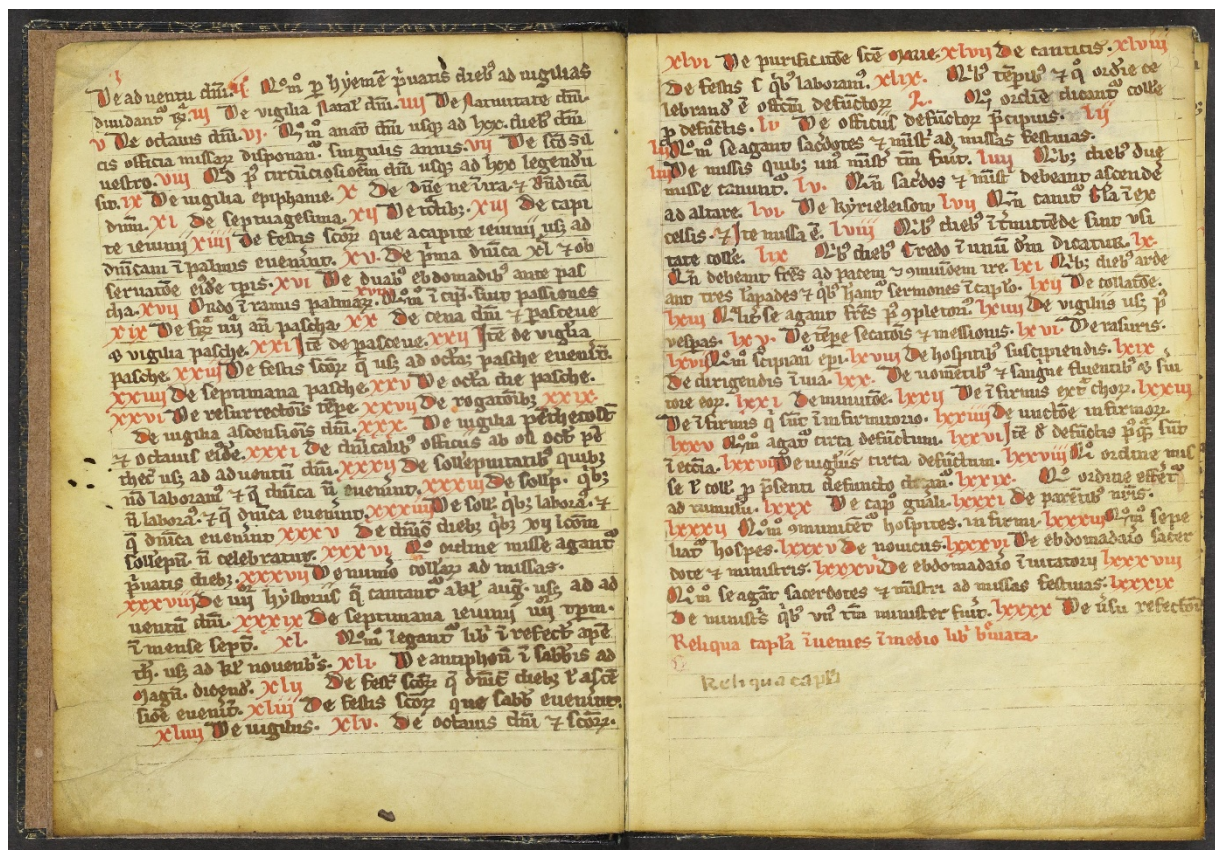 De adventu dni. ii Quom p hyeme pvatis dieb9 ad vigilias
dividant. iii De vigilia Natal dni. iiii De Nativitate dni.
v De octavis dni. vi. Quom anai dni usq ad hex. dieb dni
cis officia missar disponan. singulis annis. vii De scdo sil
vestro. viii Qd p9 circucisioem dni usq ad hex legendu
sit. ix De vigilia epiphanie. x De dne ne i ira. 7
dnm. xi De septuagesima. xii De xiii De capi
te ieiunii xiiii De festis scor que a capite ieiunii usq ad
dnicam i palmis evenirit. xv. De pma dnica xl 7 ob
servatoe eide tpis. xvi De duab9 ebdomadib9 ante pas
cha. xvii Ordo i ramis palmar. xviii Quom i sunt passiones
xix De iiii an pascha. xx De cena dni 7 pasceve
vigilia pasche. xxi Ite de pasceve. xxii Ite de viglia
pasche. xxiii De festis scor q usq ad octa pasche evenirit.
xxiiii De septimana pasche. xxv De octa die pasche.
xxvi De resurrectois tepe. xxvii De rogatoib; xxix.
De vigilia ascensiois dni. xxx. De vigilia pethecost
7 octavis eide. xxxi De dnicalib9 officiis ab oct pe
thec usq ad adventu dni. xxxii De sollepnitatib9 quib;
no laboram9 7 q dnica n evenirit. xxxiii De sollep. qb;
n labora. 7 q dnica evenirit. xxxiiii De soll. qb; labora. 7
q dnica evenirit xxxv De dieb; qb; xii lcom
sollepn. n celebratur. xxxvi Quo ordine misse agant
pvatis dieb; xxxvii De numo collar ad missas.
xxxviii De iiii hystoriis q cantant a kl aug. usq ad ad
ventu dni. xxxix De septimana ieiunii iiii tpm.
i mense sept. xl. Quom legant lib i refect ape
th. usq ad kl novenbs. xli. De antiphoni i sabbis ad
Magn. dicend. xlii De fest scor q dnic dieb; l asce
sioe evenirit. xliii De festis scor que sabb evenirit.
xliiii De vigiliis. xlv. De octavis dni 7 scor.
xlvi De purificatoe sce Marie. xlvii De canticis. xlviii
De festis i qb9 laboram. xlix. Qib9 tepib9 7 q ordie ce
lebrand e officiu defuctor L. Quo ordie dicant colle
p defuctis. Li De officiis defuctor pcipuis. Lii
Quom se agant sacdotes 7 mist ad missas festivas.
liii De missis quib; un9 mist tm fuit. liiii Qib; dieb9 due
misse canunt. lv. Qn sacdos 7 mist debeant ascende
ad altare. lvi De kyrieleison lvii Qn canit Gla i ex
celsis. 7 Ite missa e. lviii Qib9 dieb9 sint usi
tate colle. lix Qib9 dieb9 Credo i unu dm dicatur. lx.
Qn debeant fres ad pacem 7 9munioem ire. lxi Qib; dieb9 arde
ant tres lapades 7 qb9 hant sermones i caplo. lxii De collatoe.
lxiii Qualit se agant fres p9 9pletori. lxiiii De vigiliis usq p9
vespas. lxv. De tepe secatois 7 messionis. lxvi De rasuris.
lxvii Quom scipiant epi. lxviii De hospitib9 suscipiendis. lxix
De dirigendis i via. lxx. De vometib9 7 sangne fluentib9 7
tore eor. lxxi De minutoe. lxxii De ifirmis ext chor. lxxiii
De ifirmis q sut i infirmitorio. lxxiiii De uctoe infirmor.
lxxv Quom agat circa defuctum. lxxvi Ite d defuctis p9q sut
i eccia. lxxvii De vigliis circa defuctum. lxxviii Quo ordine mis
se l coll p psenti defuncto dicant. lxxix. Quo ordine
ad tumulu. lxxx De cap gnali. lxxxi De paretib9 nris.
lxxxii Quom 9municet hospites infirmi. lxxxiii Quom sepe
liat hospes. lxxxv De noviciis. lxxxvi De ebdomadaio sacer
dote 7 ministris. lxxxvii De ebdomadaio ivitatorii lxxxviii
Quom se agat sacerdotes 7 mistri ad missas festivas. lxxxix
De ministis qb9 un9 tm minister fuit. lxxxx De usu refectori
Reliqua capla i venies i medio lib
Reliqua capli